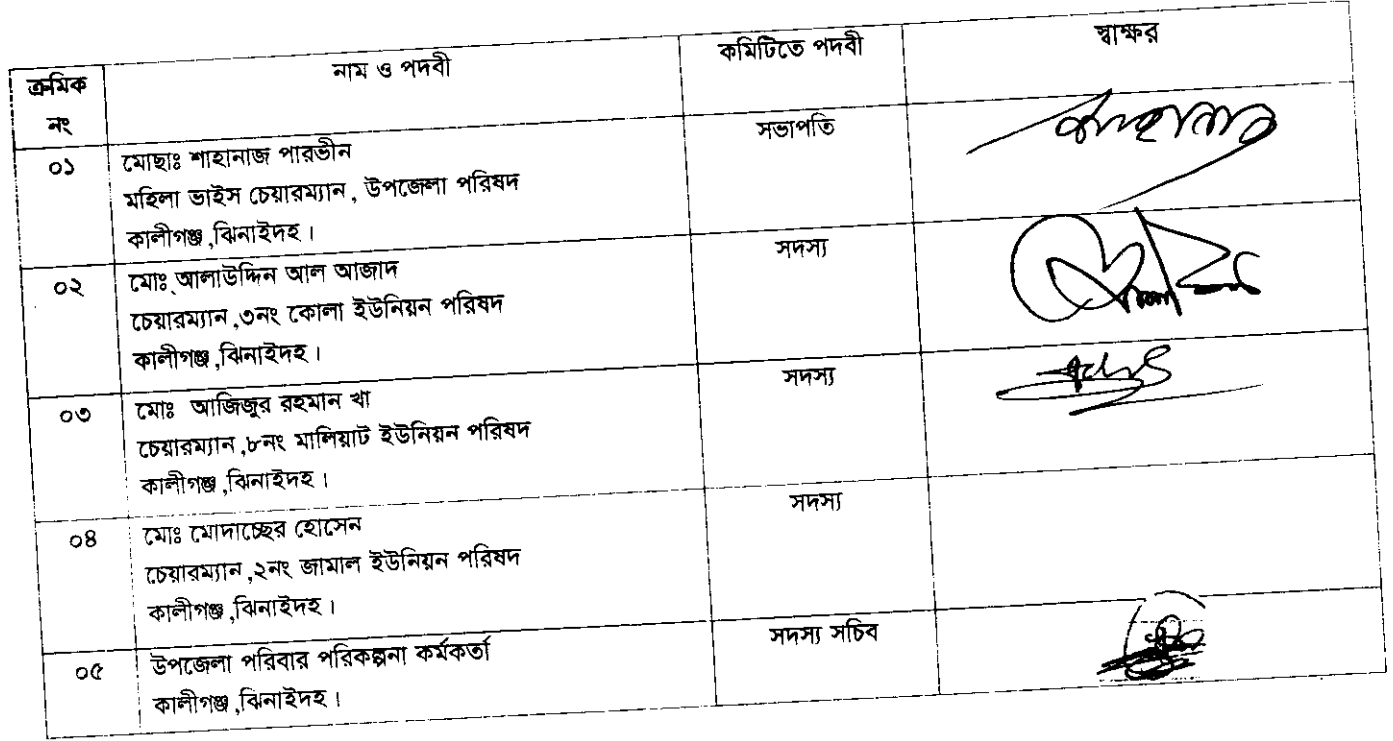 ক্রমিক নং
নাম ও পদবী
কমিটিতে পদবী
স্বাক্ষর
০১
মোছাঃ শাহানাজ পারভীন
মহিলা ভাইস চেয়ারম্যান, উপজেলা পরিষদ
কালীগঞ্জ,ঝিনাইদহ।
সভাপতি
০২
মোঃ আলাউদ্দিন আল আজাদ
চেয়ারম্যান,৩নং কোলা ইউনিয়ন পরিষদ
কালীগঞ্জ,ঝিনাইদহ।
সদস্য
০৩
মোঃ আজিজুর রহমান খা
চেয়ারম্যান,৮নং মালিয়াট ইউনিয়ন পরিষদ
কালীগঞ্জ,ঝিনাইদহ।
সদস্য
০৪
মোঃ মোদাচ্ছের হোসেন
চেয়ারম্যান,২নং জামাল ইউনিয়ন পরিষদ
কালীগঞ্জ,ঝিনাইদহ।
সদস্য
০৫
উপজেলা পরিবার পরিকল্পনা কর্মকর্তা
কালীগঞ্জ,ঝিনাইদহ।
সদস্য সচিব